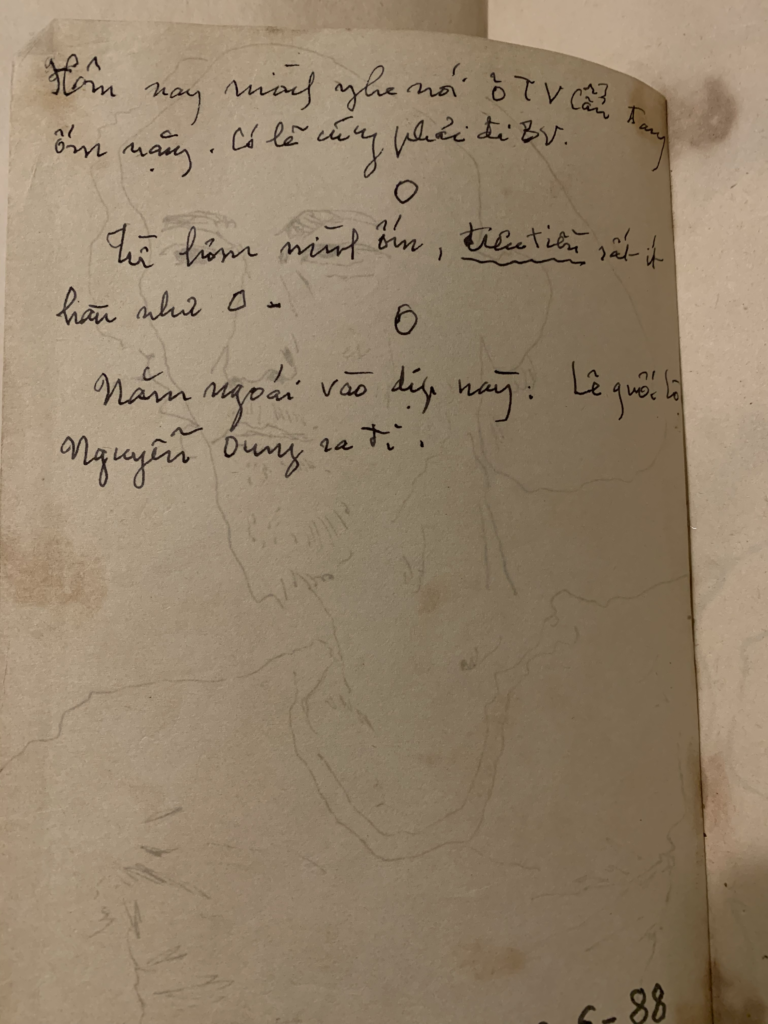 Hôm nay mình nghe nói ô TV Cẩn đang
ốm nặng. Có lẽ cũng phải đi BV.
O
Từ hôm mình ốm, tiểu tiện rất ít
hầu như O -
O
Năm ngoái vào dịp này: Lê Quốc Lộ
Nguyễn Dung ra đi.
6-88